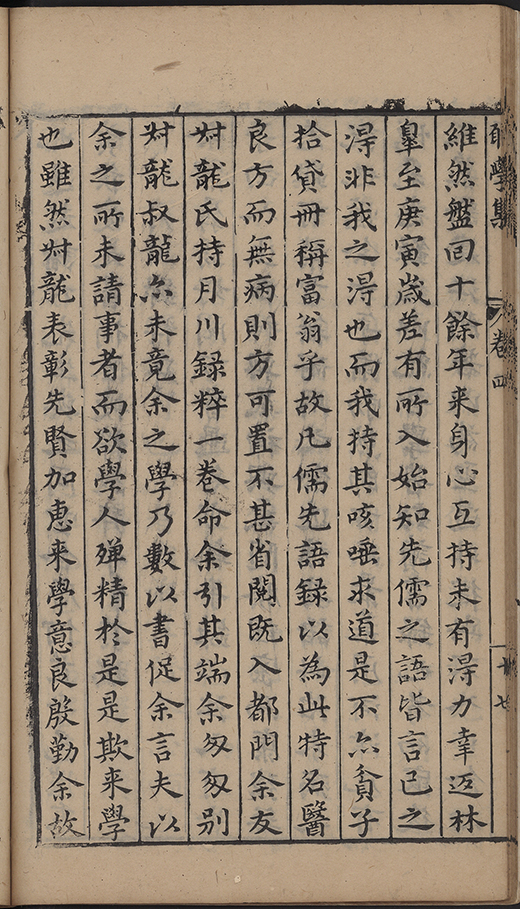 學集 卷四
維然盤回十餘年来身心互持未有淂力幸迈林
臯至庚寅歲差有所入始知先儒之語皆言已之
淂非我之淂也而我持其咳唾求道是不亦貪子
拾貸冊稱富翁乎故凡儒先語録以為此特名醫
良方而無病則方可置不甚省閱既入都門余友
叔龍氏持月川録粹一巻命余引其端余匆匆别
叔龍叔龍亦未竟余之學乃數以書促余言夫以
余之所未請事者而欲學人殫精於是是欺来學
也雖然叔龍表彰先賢加恵来學意良殷勤余故